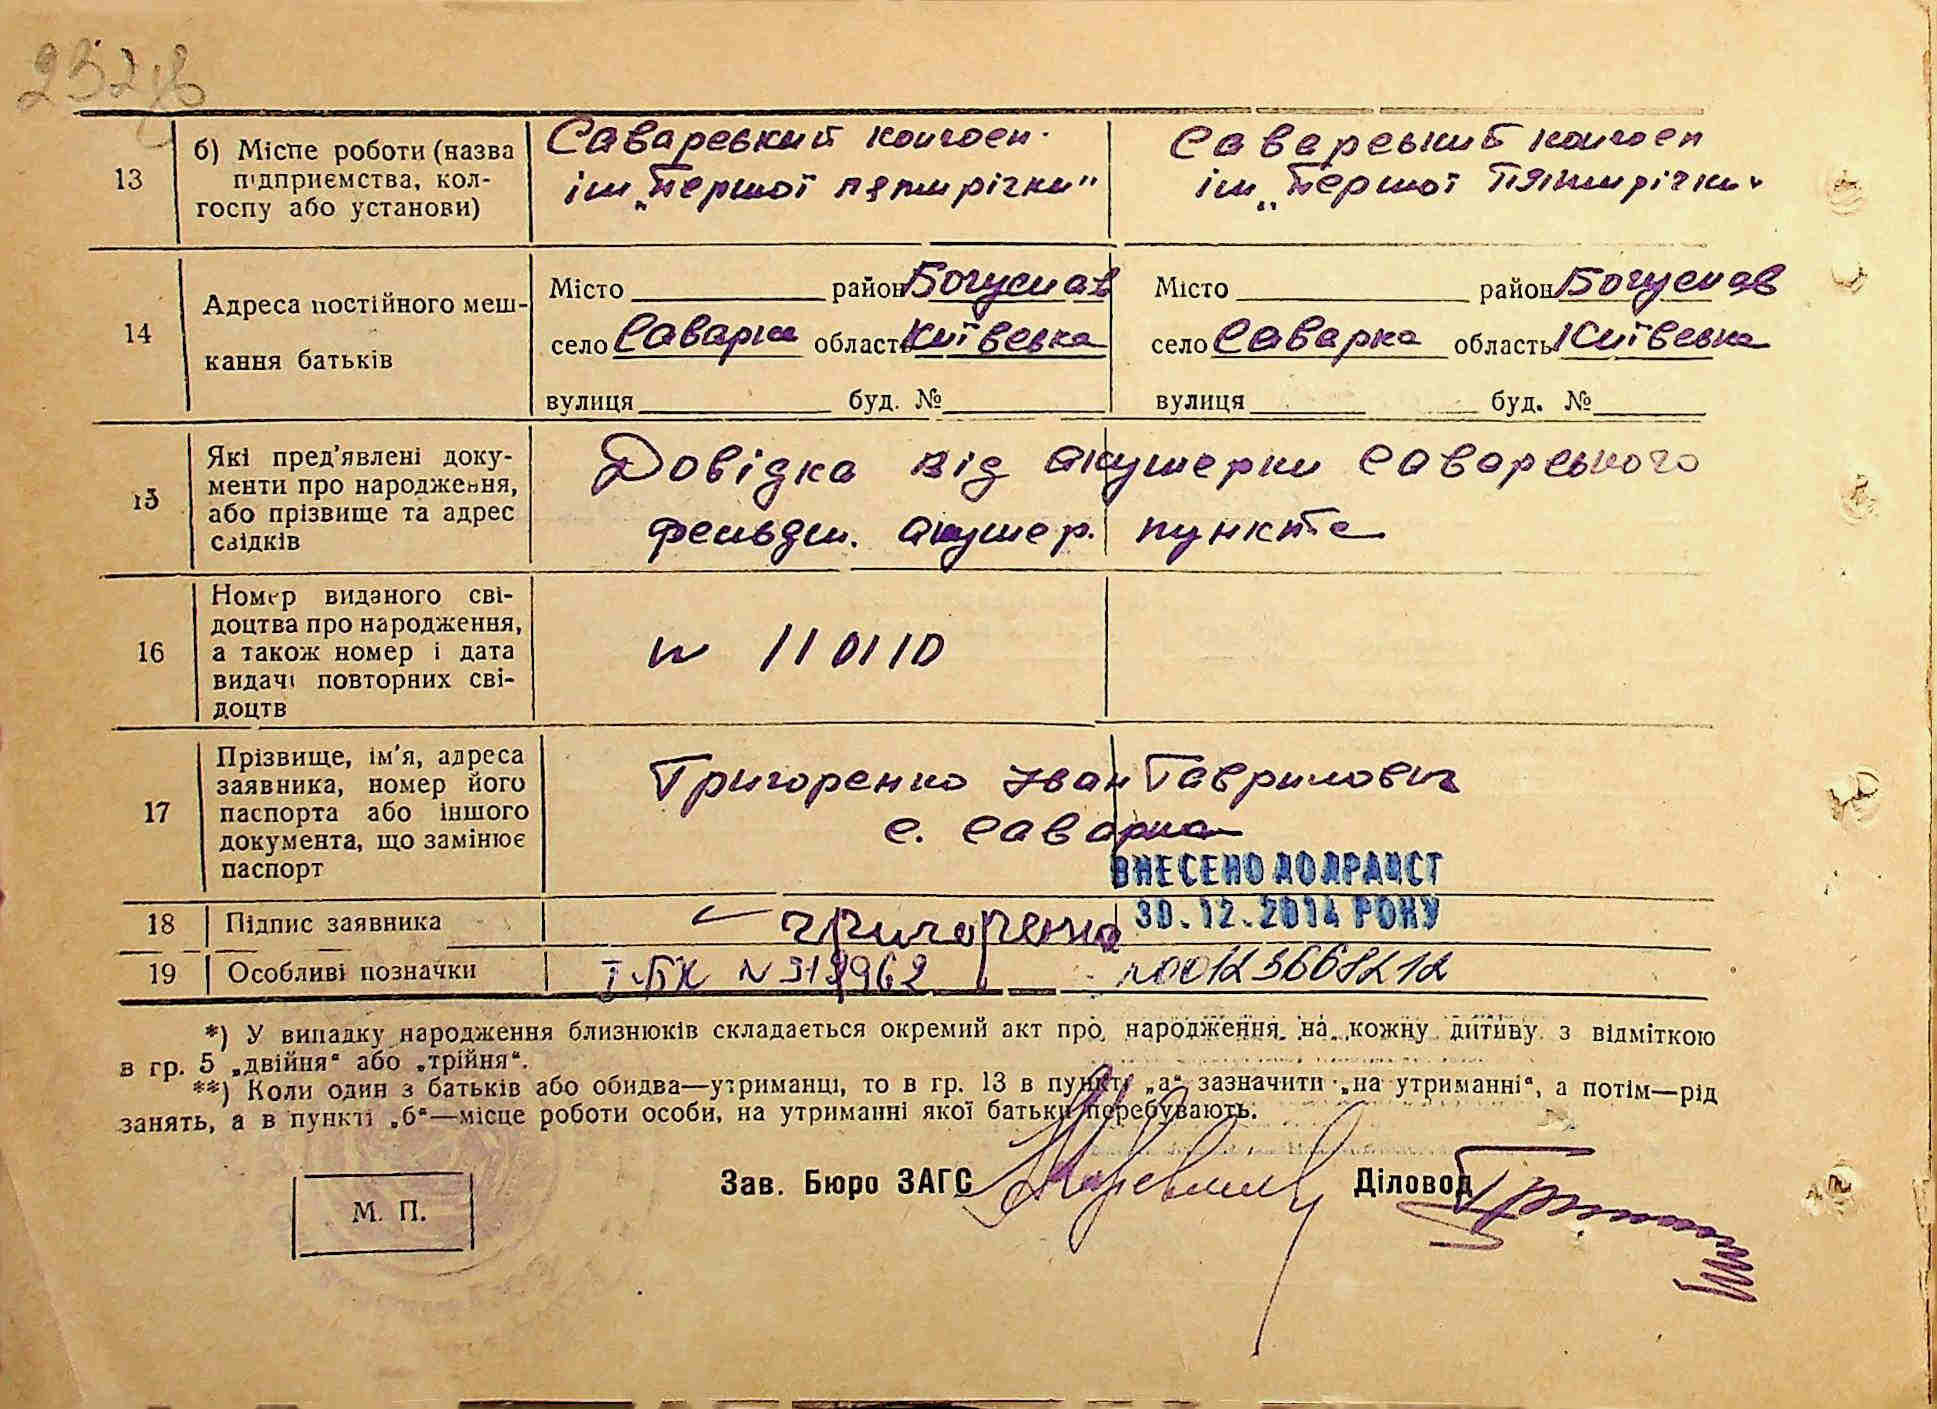 232
13
б) Місце роботи (назва
підприємства, кол-
госпу або установи)
Саварський колгосп
ім „Першої пятирічки"
Саварський колгосп
ім „Першої Пятирічки"
14
Адреса постійного меш-
кання батьків
Місто район Богуслав
село Саварка область Київська
вулиця буд. №
Місто район Богуслав
село Саварка область Київська
вулиця буд. №
15
Які пред'явлені доку-
менти про народження,
або прізвище та адрес
свідків
Довідка від акушерки Саварського
фельдш. акушер. пункта
16
Номер виданого сві-
доцтва про народження,
а також номер і дата
видачі повторних сві-
доцтв
№ 110110
17
Прізвище, ім'я, адреса
заявника, номер його
паспорта або іншого
документа, що замінює
паспорт
Григоренко Іван Гаврилович
с. Саварка
ВНЕСЕНО ДО ДРАЦСГ
30.12.2014 РОКУ
18 Підпис заявника
Григоренко
19 Особливі позначки
І-БК № 319962
№00123668212
*) У випадку народження близнюків складається окремий акт про народження на кожну дитину з відміткою
в гр. 5 „двійня“ або „трійня“.
**) Коли один з батьків або обидва—утриманці, то в гр. 13 в пункті „а“ зазначити „на утриманні“, а потім—рід
занять, а в пункті „б“—місце роботи особи, на утриманні якої батьки перебувають.
Зав. Бюро ЗАГС
Діловод
М. П.